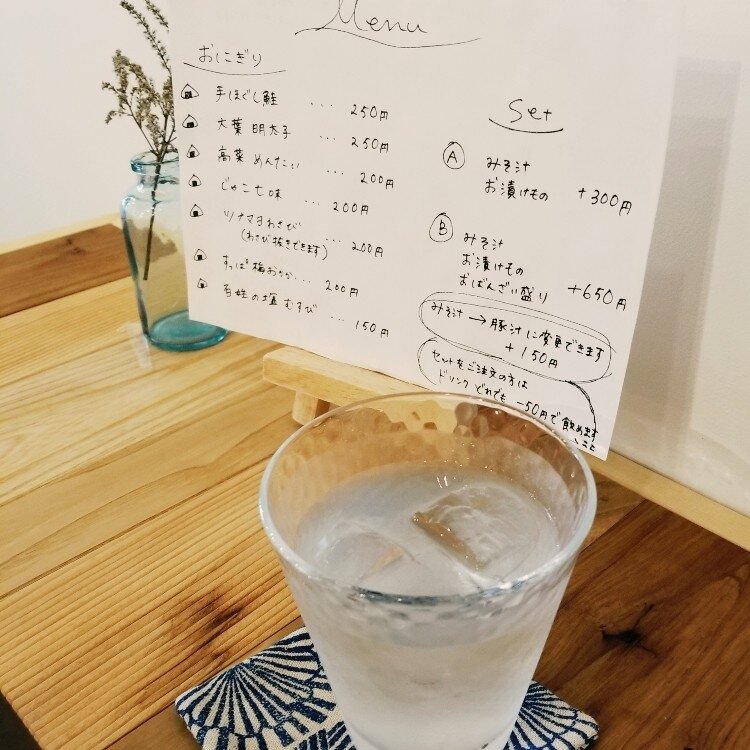 Menu
おにぎり
手ほぐし鮭 ... 250円
大葉明太子 ... 250円
高菜めんたい ... 200円
じゃこ七味 ... 200円
ツナマヨわさび ... 200円
(わさび抜きできます)
すっぱ梅おかか... 200円
百姓の塩むすび ... 150円
Set
A みそ汁
お漬けもの +300円
B みそ汁
お漬けもの
おばんざい盛り +650円
みそ汁→豚汁に変更できます
+150円
セットをご注文の方は
ドリンクどれでも -50円で飲めます